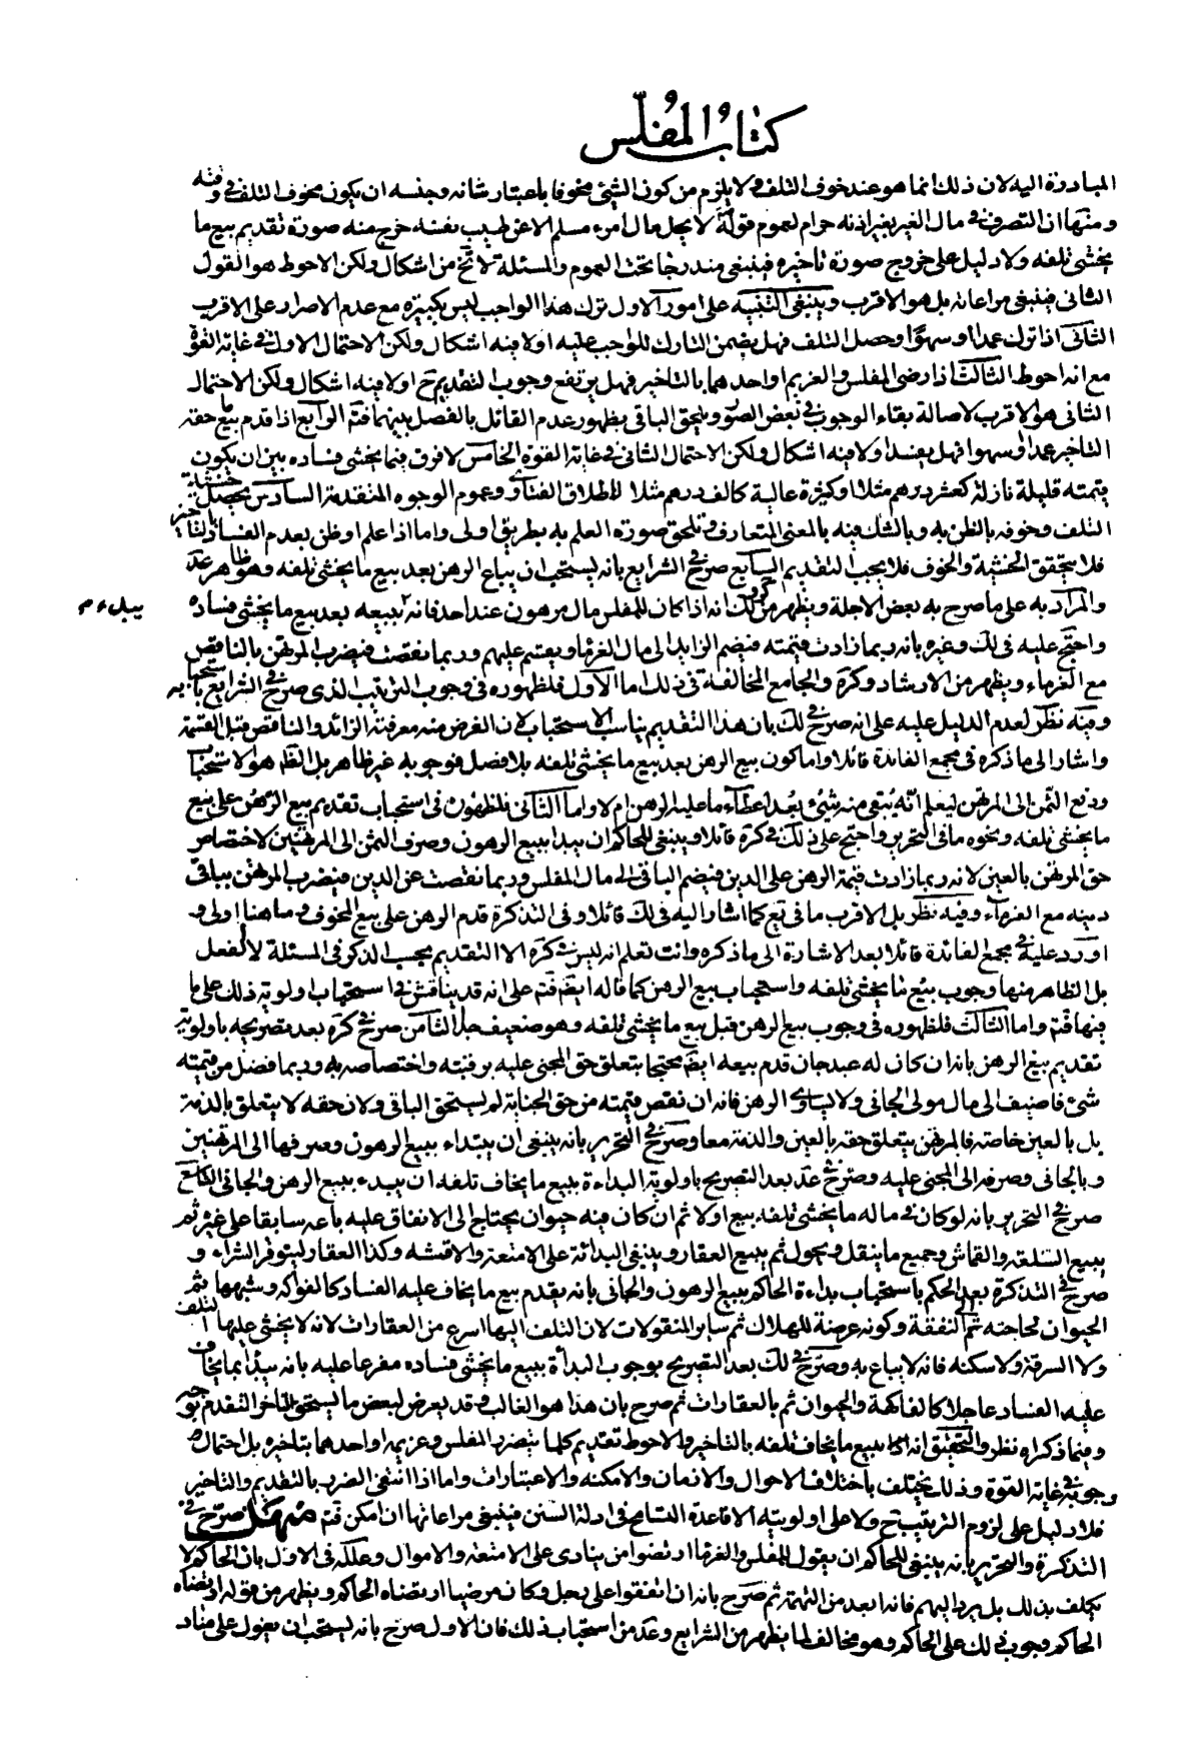 كتاب المفلس
المبادرة اليه لان ذلك انما هو عند خوف التلف فح لا يلزم من كون الشيئ مخوفا باعتبار شانه وجنسه ان يكون مخوف التلف في وقته
ومنها ان التصرف في مال الغير بغير اذنه حرام لعموم قوله لا يحل مال امرء مسلم الا عن طيب نفسه خرج منه صورة تقديم بيع ما
يخشى تلفه ولا دليل على خروج صورة تاخيره فينبغي مندرجا تحت العموم والمسئلة لا تخ من اشكال ولكن الاحوط هو القول
الثاني فينبغي مراعاته بل هو الاقرب وينبغي التنبيه على امور الاول ترك هذا الواجب ليس بكبيرة مع عدم الاصرار على الاقرب
الثاني اذا ترك عمدا او سهوا وحصل التلف فهل يضمن التارك للواجب عليه او لا فيه اشكال ولكن الاحتمال الاول في غاية القوة
مع انه احوط الثالث اذا رضى المفلس والغريم او احدهما بالتاخير فهل يرتفع وجوب التقديم ح او لا فيه اشكال ولكن الاحتمال
الثاني هو الاقرب لاصالة بقاء الوجوب في بعض الصور ويلحق الباقي بظهور عدم القائل بالفصل بينهما فتم الرابع اذا قدم بيع ما حقه
التاخير عمدا او سهوا فهل يفسد او لا فيه اشكال ولكن الاحتمال الثاني في غاية القوة الخامس لا فرق فيما يخشى فساده بين ان يكون
قيمته قليلة نازلة كعشر درهم مثلا او كثيرة عالية كالف درهم مثلا لاطلاق الفتاوى وعموم الوجوه المتقدمة السادس يحصل خشية
التلف وخوفه بالظن به وبالشك فيه بالمعنى المتعارف وتلحق صورة العلم به بطريق اولى واما اذا علم او ظن بعدم الفساد بالتاخير
فلا يتحقق الخشية والخوف فلا يجب التقديم السابع صرح في الشرايع بانه يستحب ان يباع الرهن بعد بيع ما يخشى تلفه وهو ظاهر عد
والمراد به على ما صرح به بعض الاجلة ويظهر من ك انه اذا كان للمفلس مال مرهون عند احد فانه يبيعه بعد بيع ما يخشى فساده
واحتج عليه في لك وغيره بانه ربما زادت قيمته فيضم الزايد الى مال الغرماء ويقسم عليهم وربما نقصت فيضرب المرتهن بالناقص
مع الغرماء ويظهر من الارشاد وكرة والجامع المخالفة في ذلك اما الاول فلظهوره في وجوب الترتيب الذى صرح في الشرايع باستحبابه
وفيه نظر لعدم الدليل عليه على انه صرح في لك بان هذا التقديم يناسب الاستحباب لان الغرض منه معرفة الزائد والناقص قبل القسمة
واشار الى ما ذكره في مجمع الفائدة قائلا واما كون بيع الرهن بعد بيع ما يخشى تلفه بلا فصل فوجوبه غير ظاهر بل الظ هو الاستحباب
ودفع الثمن الى المرتهن ليعلم انه يبقى منه شئ بعد اعطاء ما عليه الرهن ام لا واما الثاني فلظهوره في استحباب تقديم بيع الرهن على بيع
ما يخشى تلفه ونحوه ما في التحرير واحتج على ذلك في كرة قائلا وينبغي للحاكم ان يبدا ببيع الرهون وصرف الثمن الى المرتهنين لاختصاص
حق المرتهن بالعين لانه ربما زادت قيمة الرهن على الدين فيضم الباقي الى مال المفلس وربما نقصت عن الدين فيضرب المرتهن بباقي
دينه مع الغرماء وفيه نظر بل الاقرب ما في يع كما اشار اليه في لك قائلا وفي التذكرة قدم الرهن على بيع المخوف وما هنا اولى و
اورد عليه في مجمع الفائدة قائلا بعد الاشارة الى ما ذكره وانت تعلم انه ليس في كرة الا التقديم بحسب الذكر في المسئلة لا الفعل
بل الظاهر منها وجوب بيع ما يخشى تلفه واستحباب بيع الرهن كما قاله ايض فتم على انه قد يناقش في استحباب اولوية ذلك على ما
فيها فتم واما الثالث فلظهوره في وجوب بيع الرهن قبل بيع ما يخشى تلفه وهو ضعيف جدا الثامن صرح في كرة بعد تصريحه باولوية
تقديم بيع الرهن بانه ان كان له عبد جان قدم بيعه ايض محتجا بتعلق حق المجنى عليه برقبته واختصاصه به وربما فضل من قيمته
شئ فاضيف الى مال مولى الجاني ولا يساوى الرهن فانه ان نقص قيمته من حق الجناية لم يستحق الباقي ولان حقه لا يتعلق بالذمة
بل بالعين خاصة فالمرتهن يتعلق حقه بالعين والذمة معا وصرح في التحرير بانه ينبغي ان يبتداء ببيع الرهون وصرفها الى المرتهنين
وبالجاني وصرفه الى المجنى عليه وصرح في عد بعد التصريح باولوية البداءة ببيع ما يخاف تلفه ان يبدء ببيع الرهن والجاني التاسع
صرح في التحرير بانه لو كان في ماله ما يخشى تلفه بيع اولا ثم ان كان فيه حيوان يحتاج الى الانفاق عليه باعه سابقا على غيره ثم
يبيع السلعة والقماش وجميع ما ينقل ويحول ثم يبيع العقار وينبغي البدائة على الامتعة والاقمشه وكذا العقار ليتوفر الشراء و
صرح في التذكرة بعد الحكم باستحباب بداءة الحاكم ببيع الرهون والجاني بانه يقدم بيع ما يخاف عليه الفساد كالفواكه وشبهها ثم
الحيوان لحاجته الى النفقة وكونه عرضة للهلاك ثم ساير المنقولات لان التلف اليها اسرع من العقارات لانه لا يخشى عليها التلف
ولا السرقة ولا سكنه فانه لا يباع به وصرح في لك بعد التصريح بوجوب البداة ببيع ما يخشى فساده مفرعا عليه بانه يبدا بما يخاف
عليه الفساد عاجلا كالفاكهة والحيوان ثم بالعقارات ثم صرح بان هذا هو الغالب وقد يعرض لبعض ما يستحق التاخر التقدم بوجه
وفيما ذكراه نظر والتحقيق انه اذا بيع ما يخاف تلفه بالتاخير والاحوط تقديم كلما يتضرر المفلس وغريمه او احدهما بتاخيره بل احتمال
وجوبه في غاية القوة وذلك يختلف باختلاف الاحوال والازمان والامكنه والاعتبارات واما اذا انتفى الضرر بالتقديم والتاخير
فلا دليل على لزوم الترتيب ح ولا على اولويته الا قاعدة التسامح في ادلة السنن فينبغي مراعاتها ان امكن فتم منهل صرح في
التذكرة والتحرير بانه ينبغي للحاكم ان يقول للمفلس والغرماء ارتضوا من ينادى على الامتعة والاموال وعلله في الاول بان الحاكم لا
يكلف بذلك بل يرد اليهم فانه ابعد من التهمة ثم صرح بانه ان اتفقوا على رجل وكان مرضيا ارتضاه الحاكم ويظهر من قوله ارتضاه
الحاكم وجوب ذلك على الحاكم وهو مخالف لما يظهر من الشرايع وعد من استحباب ذلك فان الاول صرح بانه يستحب ان يعول على مناد